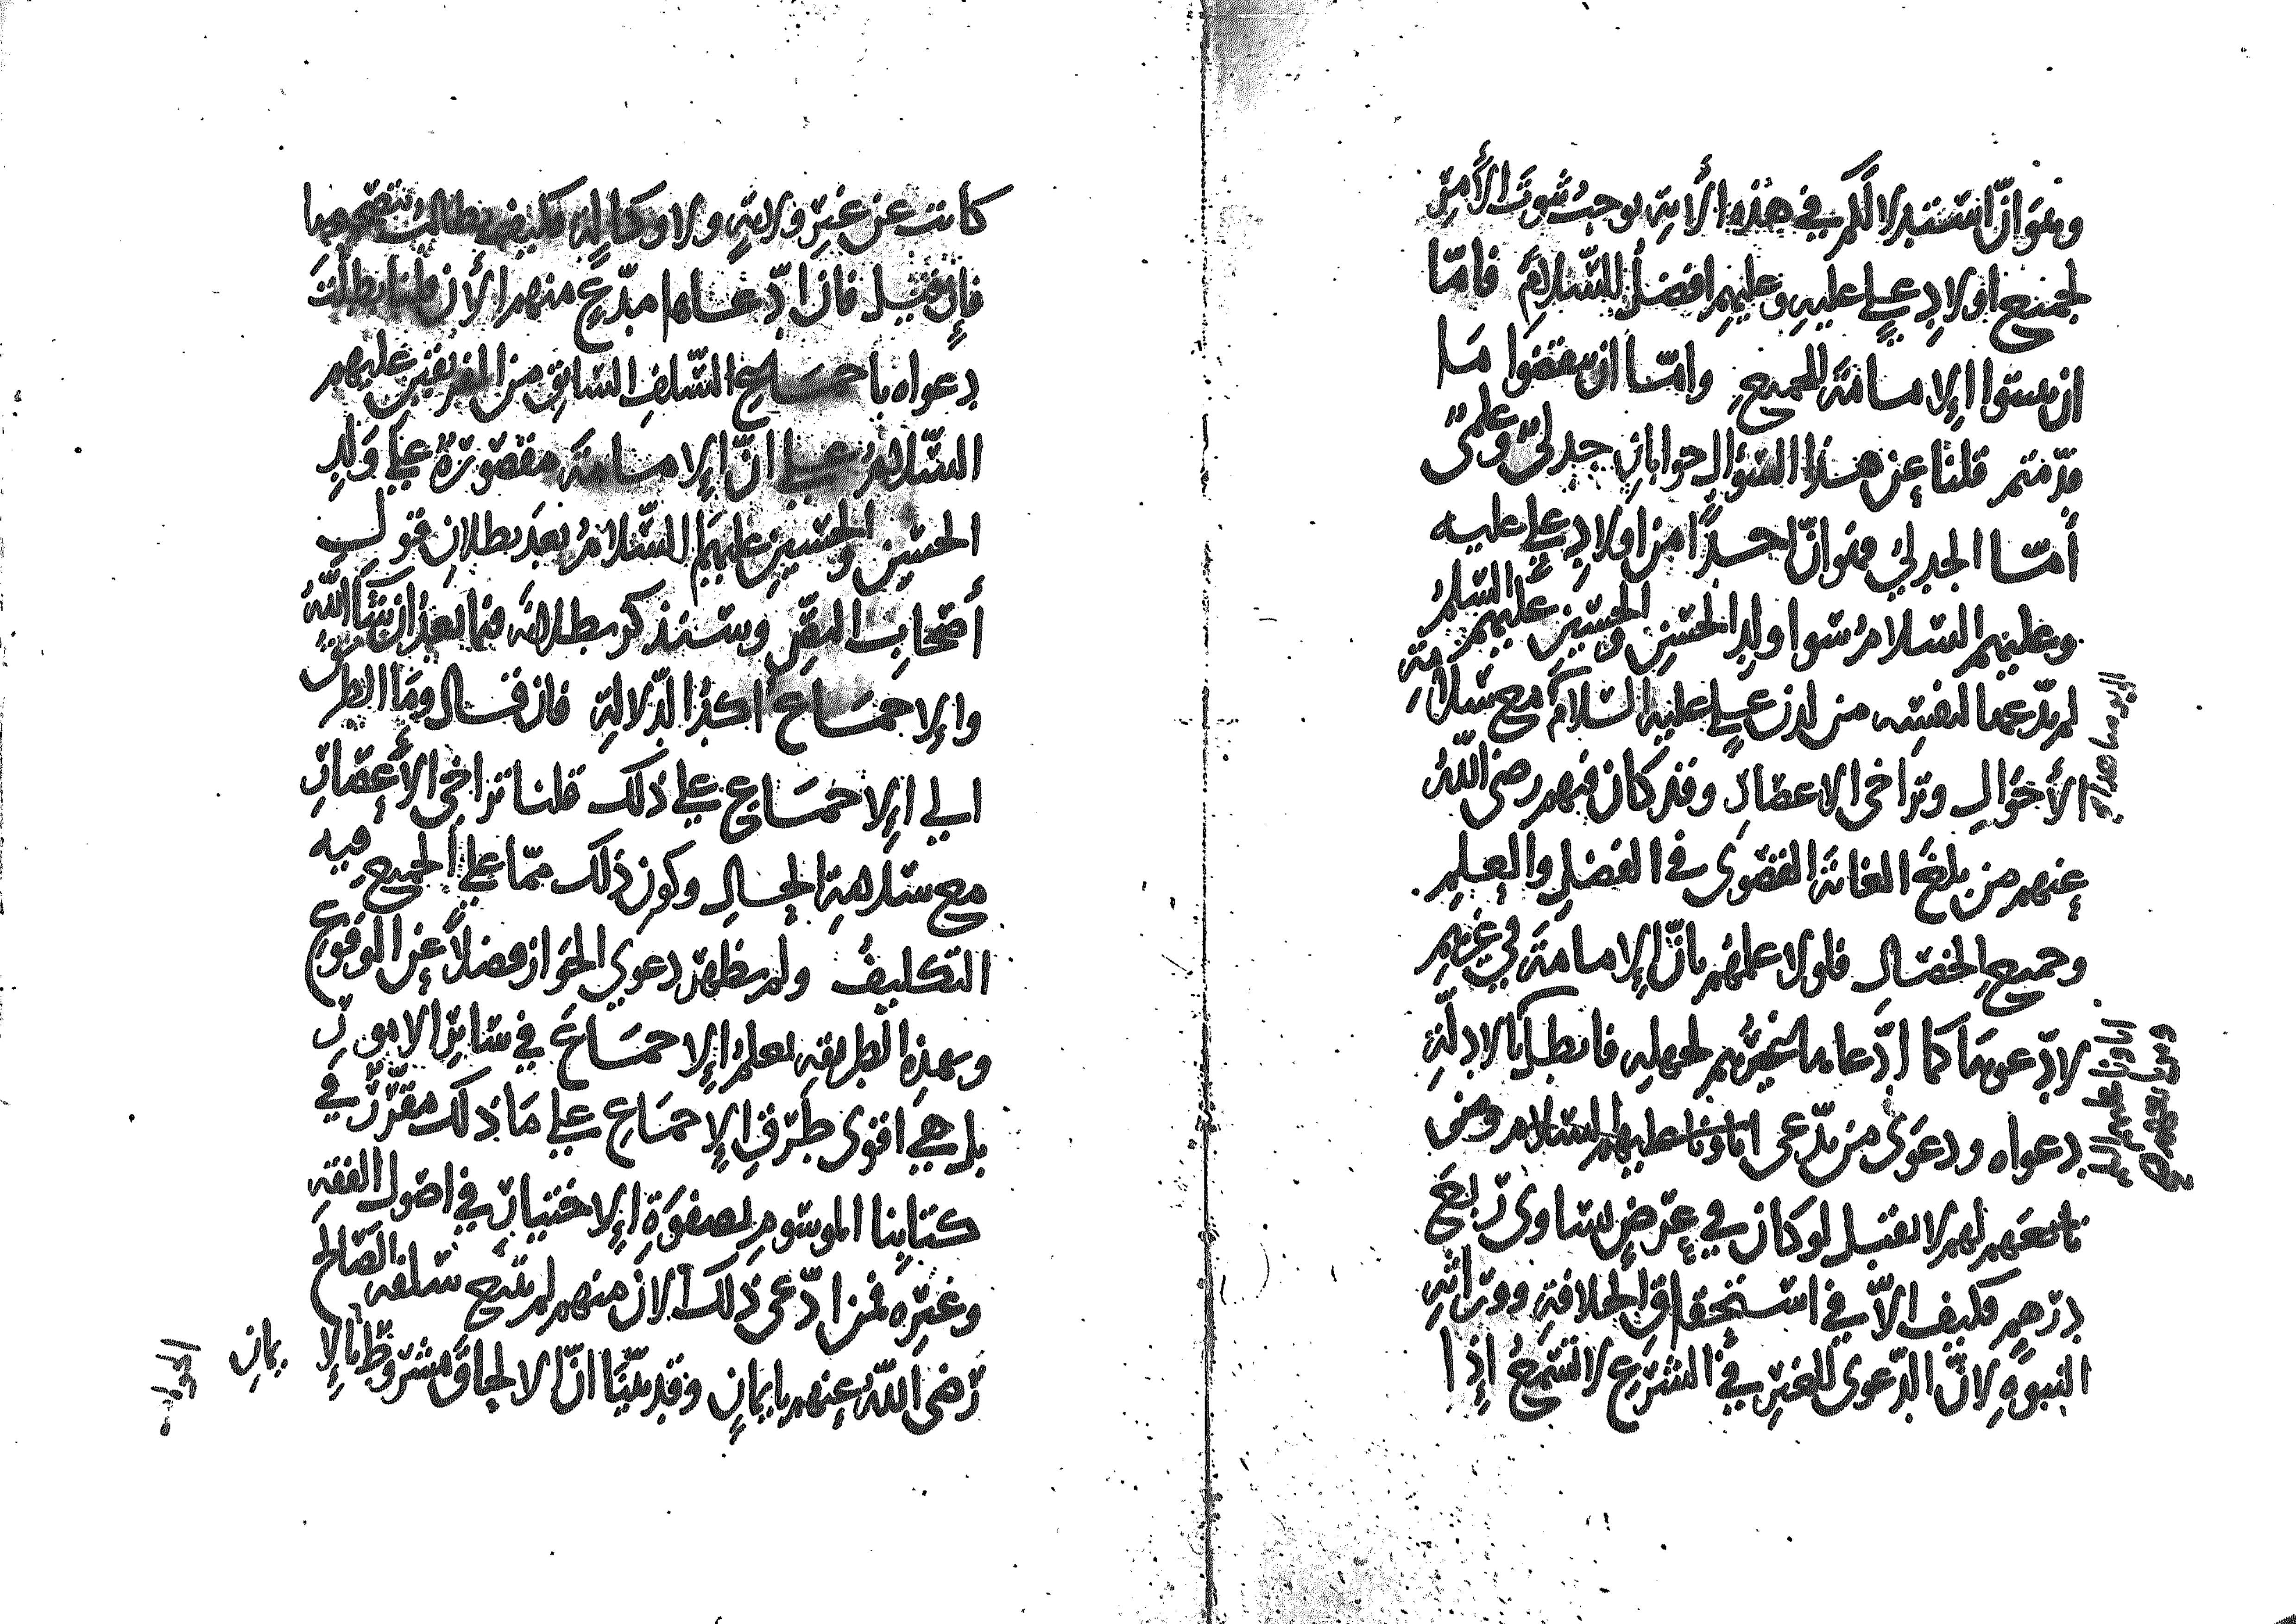 وهو انّ استدلالكم في هذه الأية يوجب ثبوت الأمر
لجميع اولاد علي عليه وعليهم افضل السّلام فامّا
ان تثبتوا الإمامة للجميع وامّا ان تنقضوا ما
قدّمتم قلنا عن هذا السّؤال جوابان جدليّ وعلميّ
أمّا الجدليّ فهو انّ احدًا من اولاد علي عليه
وعليهم السلام سوا ولد الحسن والحسين عليهم السّلم
لم يدّعها لنفسه من لدن علي عليه السّلام مع سلامة
الأحوال وتراخي الاعصار وقد كان فيهم رضي اللّه
عنهم من بلغ الغاية القصوى في الفضل والعلم
وجميع الخصال فلولا علمهم بانّ الإمامة في غيرهم
لادّعوها كما ادّعاها غيرهم لجهله فابطل بالادلّة
دعواه ودعوى من يدّعي اباؤنا عليهم السّلام ومن
تابعهم لهم لا تقبل لو كان في عرض يساوي ربع
درهم فكيف الاّ في استحقاق الخلافة ووراثة
النبوة لانّ الدّعوى للغير في الشرع لا تسمع إذا
كانت عن غير ولاية ولا وكالة فكيف يطالب بتصحيحها
فإن قيل فان ادّعاها مدّع منهم الأن قلنا بطلت
دعواه باجماع السّلف السّابق من الفريقين عليهم
السّلام علي انّ الإمامة مقصورة علي ولد
الحسن والحسين عليهما السّلام بعد بطلان قول
أصحاب النصّ وسنذكر بطلانه فيما بعد ان شآ اللّه
والإجماع اكبر الدّلالة فان قال وما الطريق
الي الإجماع علي ذلك قلنا تراخي الأعصار
مع سلامة الحال وكون ذلك ممّا علي الجميع فيه
التكليف ولم يظهر دعوى الجواز فضلاً عن الوقوع
وبهذه الطريقه يعلم الإجماع في سائر الامور
بل هي اقوى طرق الإجماع علي ما ذلك مقرّر في
كتابنا الموسوم بصفوة الإختيار في اصول الفقه
وغيره فمن ادّعى ذلك الأن منهم لم يتبع سلفه الصّالح
رضي اللّه عنهم بايمان وقد بيّنّا انّ الالحاق مشروط بالإ
يمان